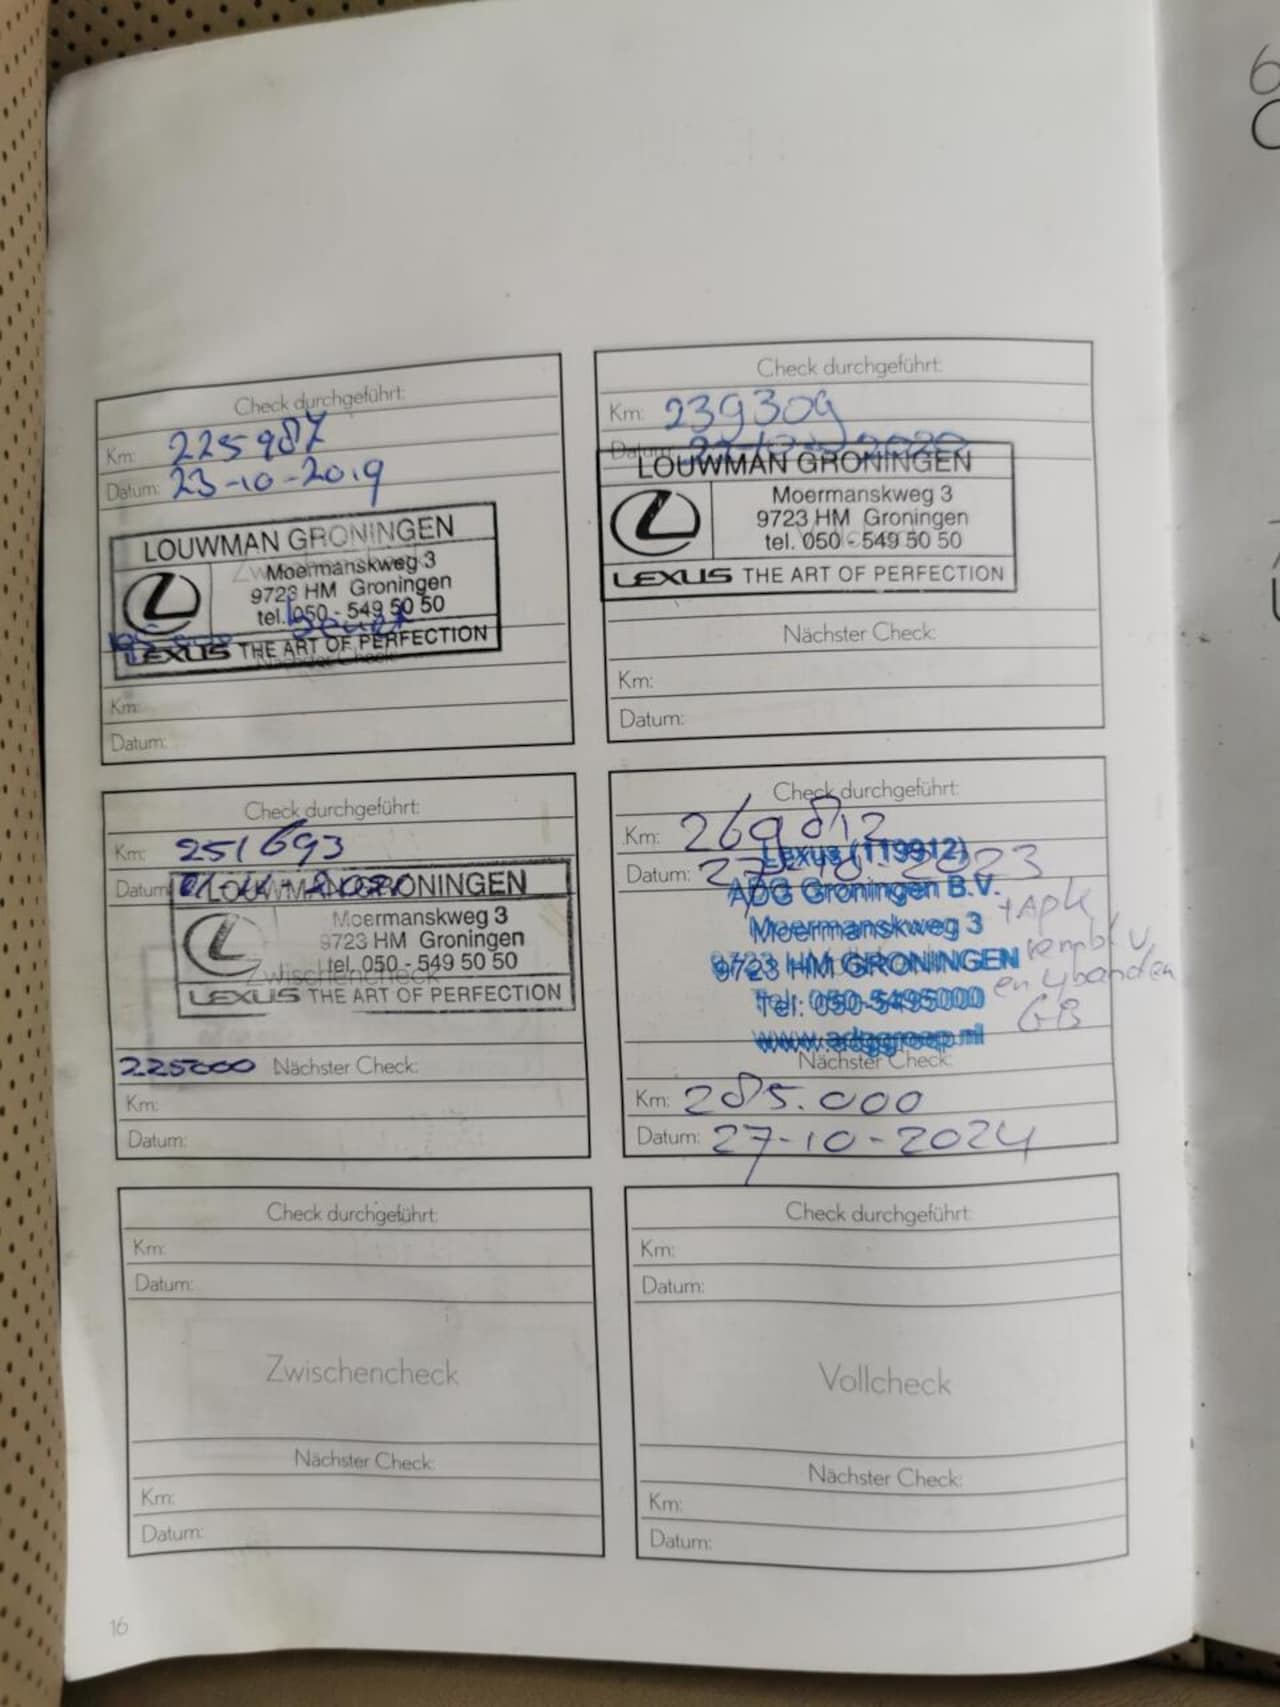 Check durchgeführt:
Km: 225987
Datum: 23-10-2019
LOUWMAN GRONINGEN
Moermanskweg 3
9723 HM Groningen
tel. 050 - 549 50 50
LEXUS THE ART OF PERFECTION
Nächster Check:
Km:
Datum:
Check durchgeführt:
Km: 239309
Datum: 2020
LOUWMAN GRONINGEN
Moermanskweg 3
9723 HM Groningen
tel. 050 - 549 50 50
LEXUS THE ART OF PERFECTION
Nächster Check:
Km:
Datum:
Check durchgeführt:
Km: 251693
Datum:
LOUWMAN GRONINGEN
Moermanskweg 3
9723 HM Groningen
tel. 050 - 549 50 50
Zwischencheck
LEXUS THE ART OF PERFECTION
225000 Nächster Check:
Km:
Datum:
Check durchgeführt:
Km: 269812
Lexus (119912)
Datum: 2023
ADG Groningen B.V.
+ Apk
Moermanskweg 3
9723 HM GRONINGEN
en 4 banden
Tel: 050-5495000
GB
www.adggroep.nl
Nächster Check:
Km: 285.000
Datum: 27-10-2024
Check durchgeführt:
Km:
Datum:
Zwischencheck
Nächster Check:
Km:
Datum:
Check durchgeführt:
Km:
Datum:
Vollcheck
Nächster Check:
Km:
Datum:
16